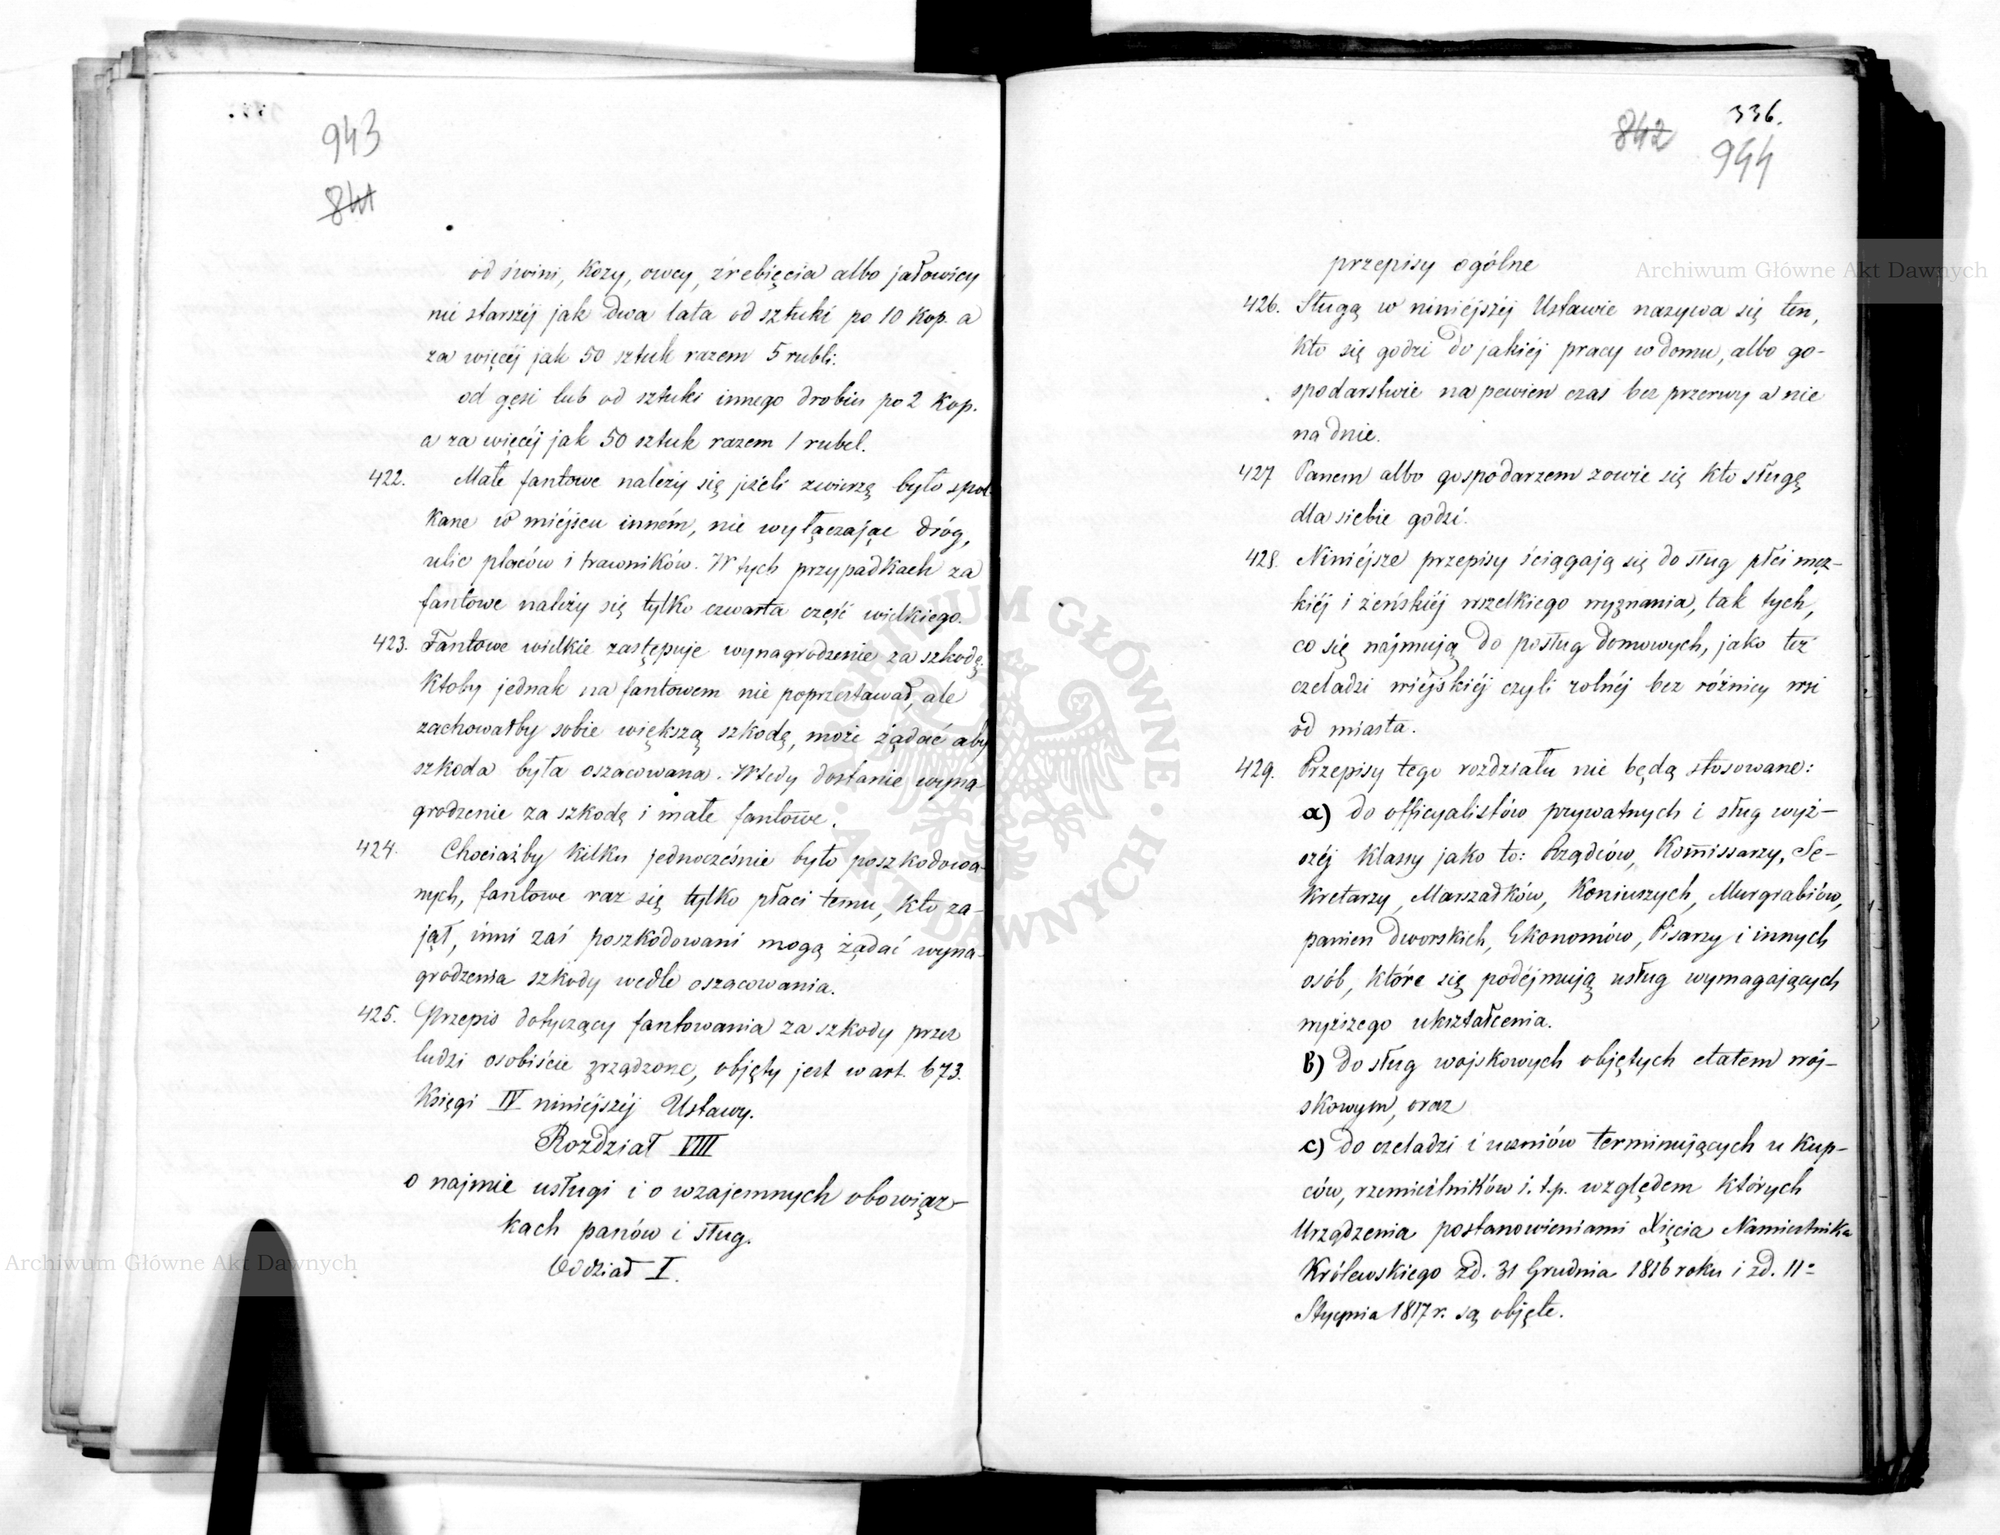 943
841
od świni, kozy, owcy, źrebięcia albo jałowicy
nie starszéj jak dwa lata od sztuki po 10 kop. a
za więcéj jak 50 sztuk razem 5 rubli.
od gęsi lub od sztuki innego drobiu po 2 kop.
a za więcéj jak 50 sztuk razem 1 rubel.
422. Małe fantowe należy się jeżeli zwierzę było spot-
kane w miéjscu inném, nie wyłączając dróg,
ulic placów i trawników. W tych przypadkach za
fantowe należy się tylko czwarta część wielkiego.
423. Fantowe wielkie zastępuje wynagrodzenie za szkodę.
Ktoby jednak na fantowem nie poprzestawał, ale
zachowałby sobie większą szkodę, może żądać aby
szkoda była oszacowana. Wtedy dostanie wyna-
grodzenie za szkodę i małe fantowe.
424. Chociażby kilku jednocześnie było poszkodowa-
nych, fantowe raz się tylko płaci temu, kto za-
jął, inni zaś poszkodowani mogą żądać wyna-
grodzenia szkody wedle oszacowania.
425. Przepis dotyczący fantowania za szkody przez
ludzi osobiście zrządzone, objęty jest w art. 673.
Księgi IV niniéjszéj Ustawy.
Rozdział VIII
o najmie usługi i o wzajemnych obowiąz-
kach panów i sług.
Oddział I.
336.
842
944
przepisy ogólne
426. Sługą w niniéjszéj Ustawie nazywa się ten,
kto się godzi do jakiéj pracy w domu, albo go-
spodarstwie na pewien czas bez przerwy a nie
na dnie.
427 Panem albo gospodarzem zowie się kto sługę
dla siebie godzi.
428. Niniéjsze przepisy ściągają się do sług płci męz-
kiéj i żeńskiéj wszelkiego wyznania, tak tych,
co się najmują do posług domowych, jako też
czeladzi wiéjskiéj czyli rolnéj bez różnicy wsi
od miasta.
429. Przepisy tego rozdziału nie będą stosowane:
a) do officyalistów prywatnych i sług wyż-
széj klassy jako to: Rządców, Kommissarzy, Se-
kretarzy, Marszałków, Koniuszych, Murgrabiów,
panien dworskich, Ekonomów, Pisarzy i innych
osób, które się podéjmują usług wymagających
wyższego ukształcenia.
b) do sług wojskowych objętych etatem woj-
skowym, oraz
c) do czeladzi i uczniów terminujących u kup-
ców, rzemieślników i. t. p. względem których
Urządzenia postanowieniami Xięcia Namiestnika
Królewskiego zd. 31 Grudnia 1816 roku i zd. 11º
Stycznia 1817 r. są objęte.
Archiwum Główne Akt Dawnych
Archiwum Główne Akt Dawnych
ARCHIWUM GŁÓWNE
AKT DAWNYCH